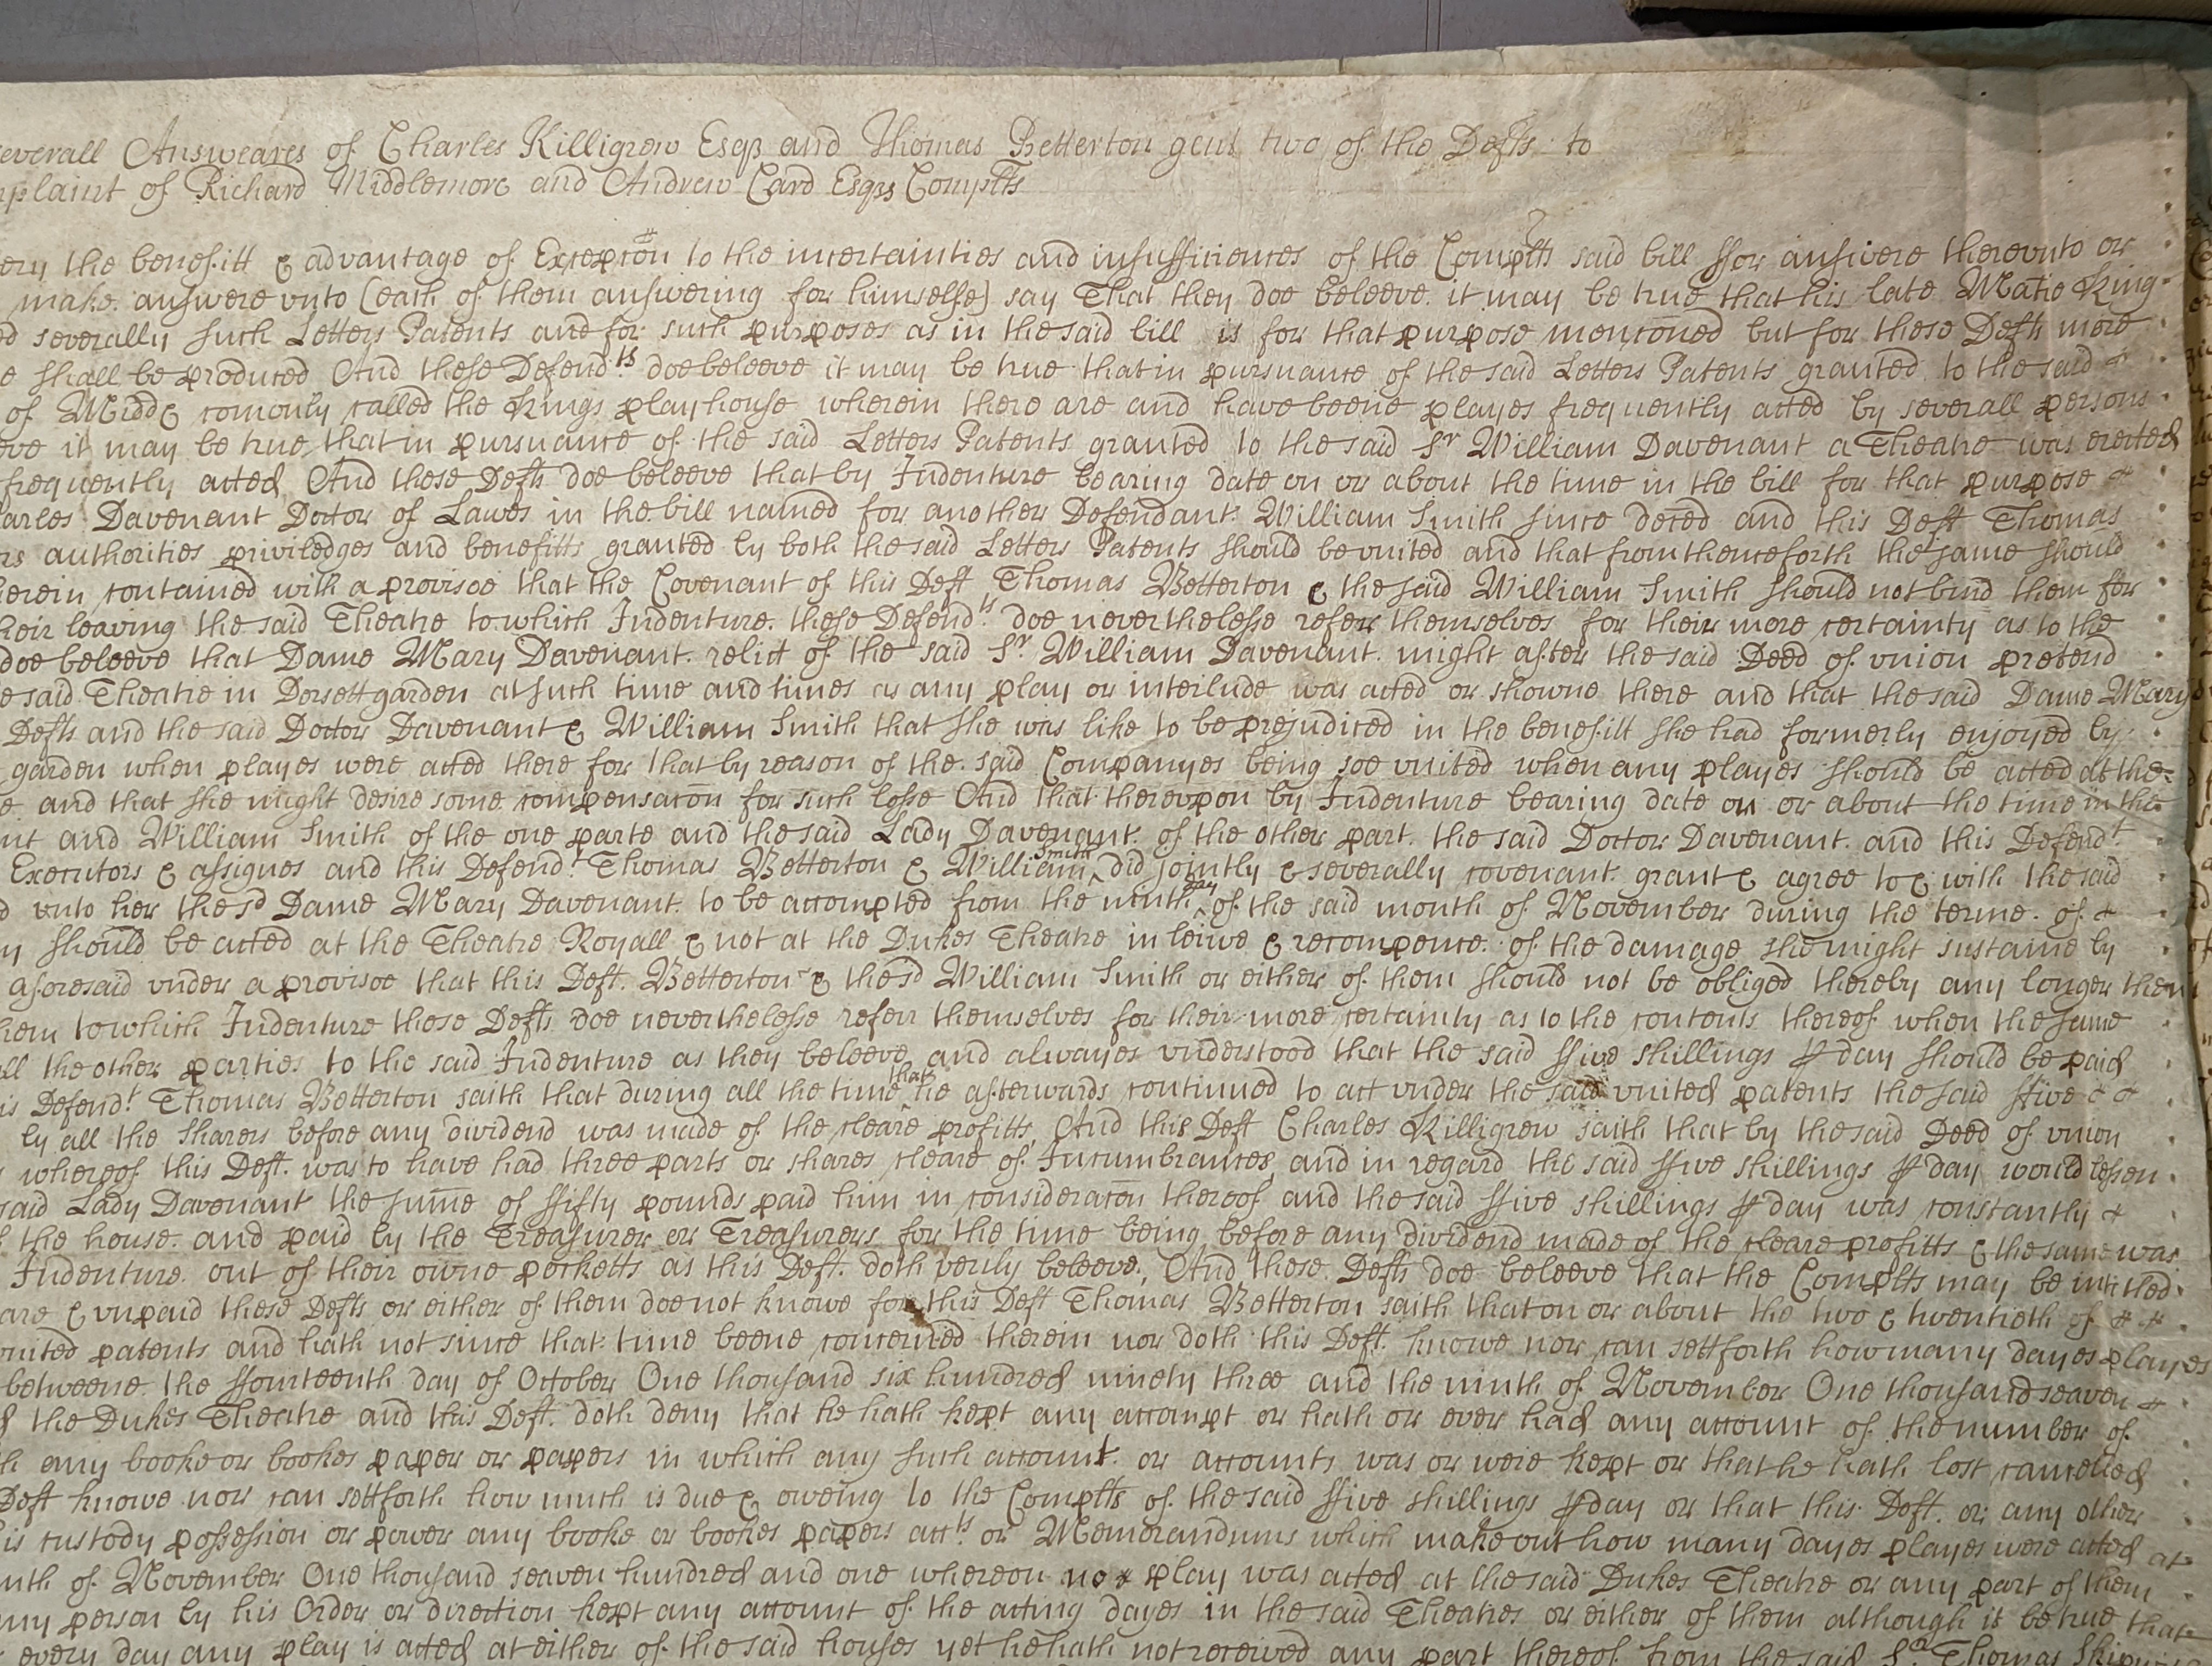 everall Answeares of Charles Killigrew Esqr and Thomas Betterton gent two of the Defts to
plaint of Richard Middlemore and Andrew Card Esqrs Complts
the benefitt & advantage of Excepcon to the incertainties and insufficiences of the Complts said bill ffor answere therevnto or
make answere vnto (each of them answering for himselfe) say That they doe beleeve it may be true that his late Matie King
severally such Letters Patents and for such purposes as in the said bill is for that purpose menconed but for these Defts more
shall be produced And these Defendts doe beleeve it may be true that in pursuance of the said Letters Patents granted to the said
of Midd comonly called the Kings playhouse wherein there are and have beene playes frequently acted by severall persons
eve it may be true that in pursuance of the said Letters Patents granted to the said Sr William Davenant a Theatre was erected
frequently acted And these Defts doe beleeve that by Indenture bearing date on or about the time in the bill for that purpose
arles Davenant Doctor of Lawes in the bill named for another Defendant William Smith since deced and this Deft Thomas
rs authorities priviledges and benefitts granted by both the said Letters Patents should be vnited and that from thenceforth the same should
herein contained with a provisoe that the Covenant of this Deft Thomas Betterton & the said William Smith should not bind them for
heir leaving the said Theatre to which Indenture these Defendts doe neverthelesse referr themselves for their more certainty as to the
doe beleeve that Dame Mary Davenant relict of the said Sr William Davenant might after the said Deed of vnion pretend
e said Theatre in Dorsett garden at such time and times as any play or interlude was acted or showne there and that the said Dame Mary
Defts and the said Doctor Davenant & William Smith that she was like to be prejudiced in the benefitt she had formerly enjoyed by
garden when playes were acted there for that by reason of the said Companyes being soe vnited when any playes should be acted at the
e and that she might desire some compensacon for such losse And that therevpon by Indenture bearing date on or about the time in the
nt and William Smith of the one parte and the said Lady Davenant of the other part the said Doctor Davenant and this Defendt
Executors & assignes and this Defendt Thomas Betterton & William Smith did joyntly & severally covenant grant & agree to & with the said
d vnto her the sd Dame Mary Davenant to be accompted from the ninth day of the said month of November during the terme of
y should be acted at the Theatre Royall & not at the Dukes Theatre in leiwe & recompence of the damage she might sustaine by
aforesaid vnder a provisoe that this Deft Betterton & the sd William Smith or either of them should not be obliged thereby any longer then
hem to which Indenture these Defts doe neverthelesse referr themselves for their more certainty as to the contents thereof when the same
all the other parties to the said Indenture as they beleeve and alwayes vnderstood that the said ffive shillings p day should be paid
is Defendt Thomas Betterton saith that during all the time that he afterwards continued to act vnder the said vnited patents the said ffive
by all the sharers before any dividend was made of the cleare profitts And this Deft Charles Killigrew saith that by the said Deed of vnion
whereof this Deft was to have had three parts or shares cleare of Incumbrances and in regard the said ffive shillings p day would lessen
said Lady Davenant the sume of ffifty pounds paid him in consideracon thereof and the said ffive shillings p day was constantly
f the house and paid by the Treasurer or Treasurers for the time being before any dividend made of the cleare profitts & the same was
Indenture out of their owne pocketts as this Deft doth verily beleeve, And these Defts doe beleeve that the Complts may be intitled
are & vnpaid these Defts or either of them doe not knowe for this Deft Thomas Betterton saith that on or about the two & twentieth of
vnited patents and hath not since that time beene concerned therein nor doth this Deft knowe nor can settforth how many dayes playes
betweene the ffourteenth day of October One thousand six hundred ninety three and the ninth of November One thousand seaven
the Dukes Theatre and this Deft doth deny that he hath kept any accompt or hath or ever had any account of the number of
h any booke or bookes paper or papers in which any such account or accounts was or were kept or that he hath lost cancelled
Deft knowe nor can settforth how much is due & oweing to the Complts of the said ffive shillings p day or that this Deft or any other
is custody possession or power any booke or bookes papers accts or Memorandums which make out how many dayes playes were acted at
nth of November One thousand seaven hundred and one whereon no play was acted at the said Dukes Theatre or any part of them
any person by his Order or direction kept any account of the acting dayes in the said Theatres or either of them although it be true that
every day any play is acted at either of the said houses yet he hath not received any part thereof from the said Sr Thomas